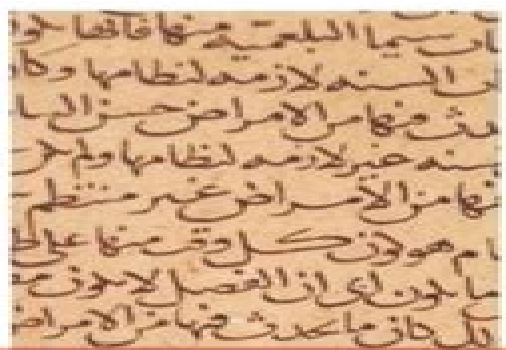 سيما البلغمية منها فانها
السنه لازمه لنظامها وكا
منها من الامراض حسن الحا
سنه غير لازمه لنظامها ولم
منها من الامراض غير منتظم
هو ان كل وقت منها على
يكون اي ان الفصل لا يكون
كان ما يحدث فيها من الامراض